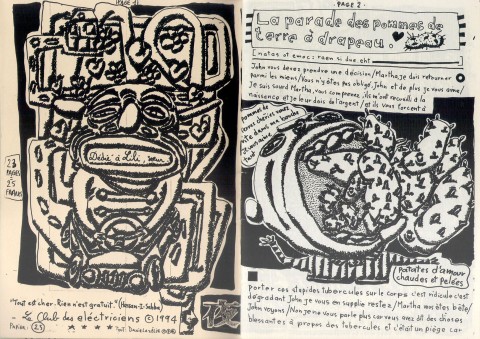 PAGE 2.
La parade des pommes de
terre à drapeau.
John vous devez prendre une décision/Martha, je dois retourner
parmi les miens/Vous n'êtes pas obligé, John et de plus je vous aime/
Je suis sourd Martha, vous comprenez, ils m'ont recueilli à la
naissance et je leur dois de l'argent/
pommes de
terres chéries
dans ma bouche
Dédié à Lili,
23
PAGES
25
FRANCS
Patates d'amour
chaudes et pelées
"Tout est cher. Rien n'est gratuit." (Hassan-I-Sabba)
- Le Club des électriciens © 1994
夜
porter
des
tubercules sur le corps c'est ridicule c'est
dégradant John je vous en supplie restez/Martha vous êtes bête/
John voyons/Non je ne vous parle plus car vous avez dit des choses
blessantes à propos des tubercules et c'était un piège car